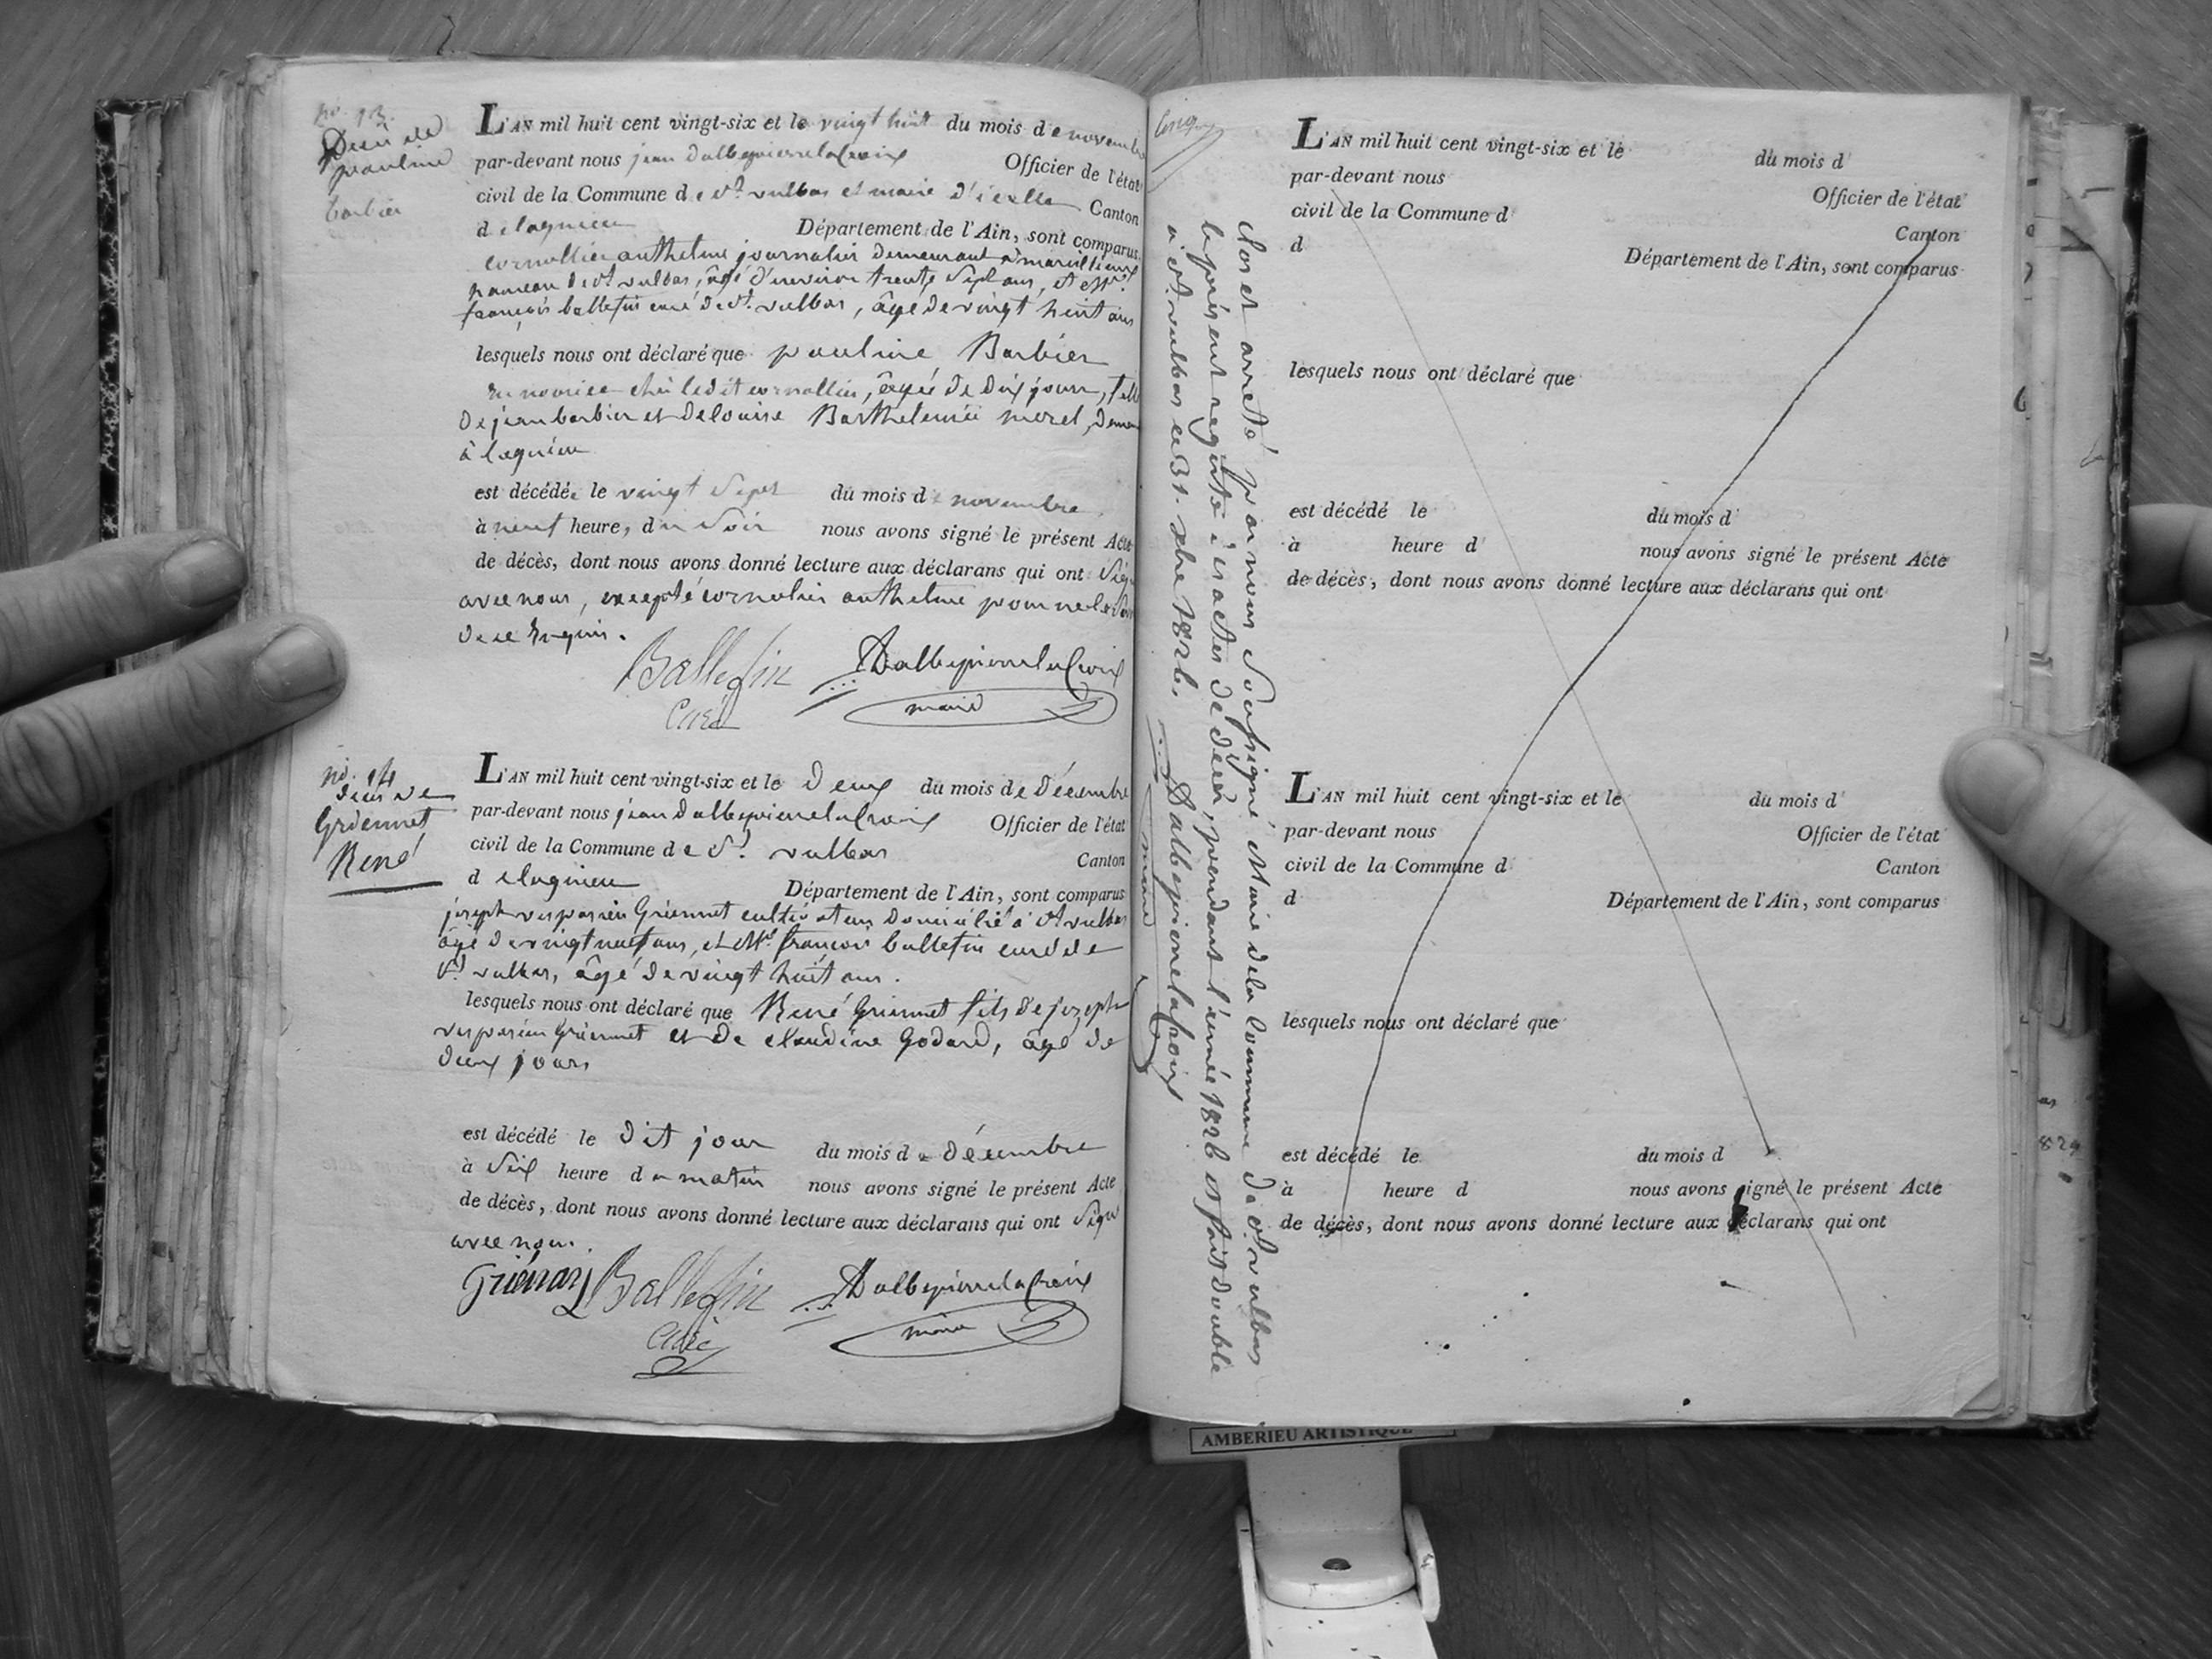 no. 13.
Décès de
pauline
barbier
L'AN mil huit cent vingt-six et le vingt huit du mois de novembre
par-devant nous jean dalbepierrelacroix Officier de l'état
civil de la Commune de St. vulbas et maire d'icelle Canton
de lagnieu Département de l'Ain, sont comparus
cornollier anthelme journalier demeurant à marcillieux
hameau de St vulbas, âgé d'environ trente sept ans, et Mre.
françois ballefin curé de St. vulbas, âgé de vingt huit ans
lesquels nous ont déclaré que pauline Barbier
en nourice chéz ledit cornollier, âgée de dix jours, fille
de jean barbier et de louise Barthelemie morel, demeu
à lagnieu
est décédée le vingt Sept du mois de novembre
à neuf heure, du Soir nous avons signé le présent Acte
de décès, dont nous avons donné lecture aux déclarans qui ont Signé
avec nous, excepté cornolier anthelme pour ne le
de ce Enquis.
Ballefin Dalbepierrelacroix
Curé maire
no. 14
décès de
Griennet
René
L'AN mil huit cent vingt-six et le Deux du mois de Décembre
par-devant nous jean dalbepierrelacroix Officier de l'état
civil de la Commune de St. vulbas Canton
de lagnieu Département de l'Ain, sont comparus
joseph vespasien Griennet cultivateur domicilié à St vulbas
âgé de vingt neuf ans, et Mre. françois ballefin curé de
St. vulbas, âgé de vingt huit ans.
lesquels nous ont déclaré que René Griennet fils de jozeph
vespasien Griennet et de claudine Godard, âgé de
deux jours
est décédé le Dit jour du mois de décembre
à Six heure du matin nous avons signé le présent Acte
de décès, dont nous avons donné lecture aux déclarans qui ont Signé
avec nous.
Ballefin Dalbepierrelacroix
Curé maire
Clos et arretté par nous Soussigné Maire dela Commune de St vulbas
le présent registre d'actes de décès, pendant l'année 1826 et fait double
à St vulbas ce 31. xbre 1826.
Dalbepierrelacroix
maire
L'AN mil huit cent vingt-six et le du mois d
par-devant nous Officier de l'état
civil de la Commune d Canton
d Département de l'Ain, sont comparus
lesquels nous ont déclaré que
est décédé le du mois d
à heure d nous avons signé le présent Acte
de décès, dont nous avons donné lecture aux déclarans qui ont
L'AN mil huit cent vingt-six et le du mois d
par-devant nous Officier de l'état
civil de la Commune d Canton
d Département de l'Ain, sont comparus
lesquels nous ont déclaré que
est décédé le du mois d
à heure d nous avons signé le présent Acte
de décès, dont nous avons donné lecture aux déclarans qui ont
AMBERIEU ARTISTIQUE